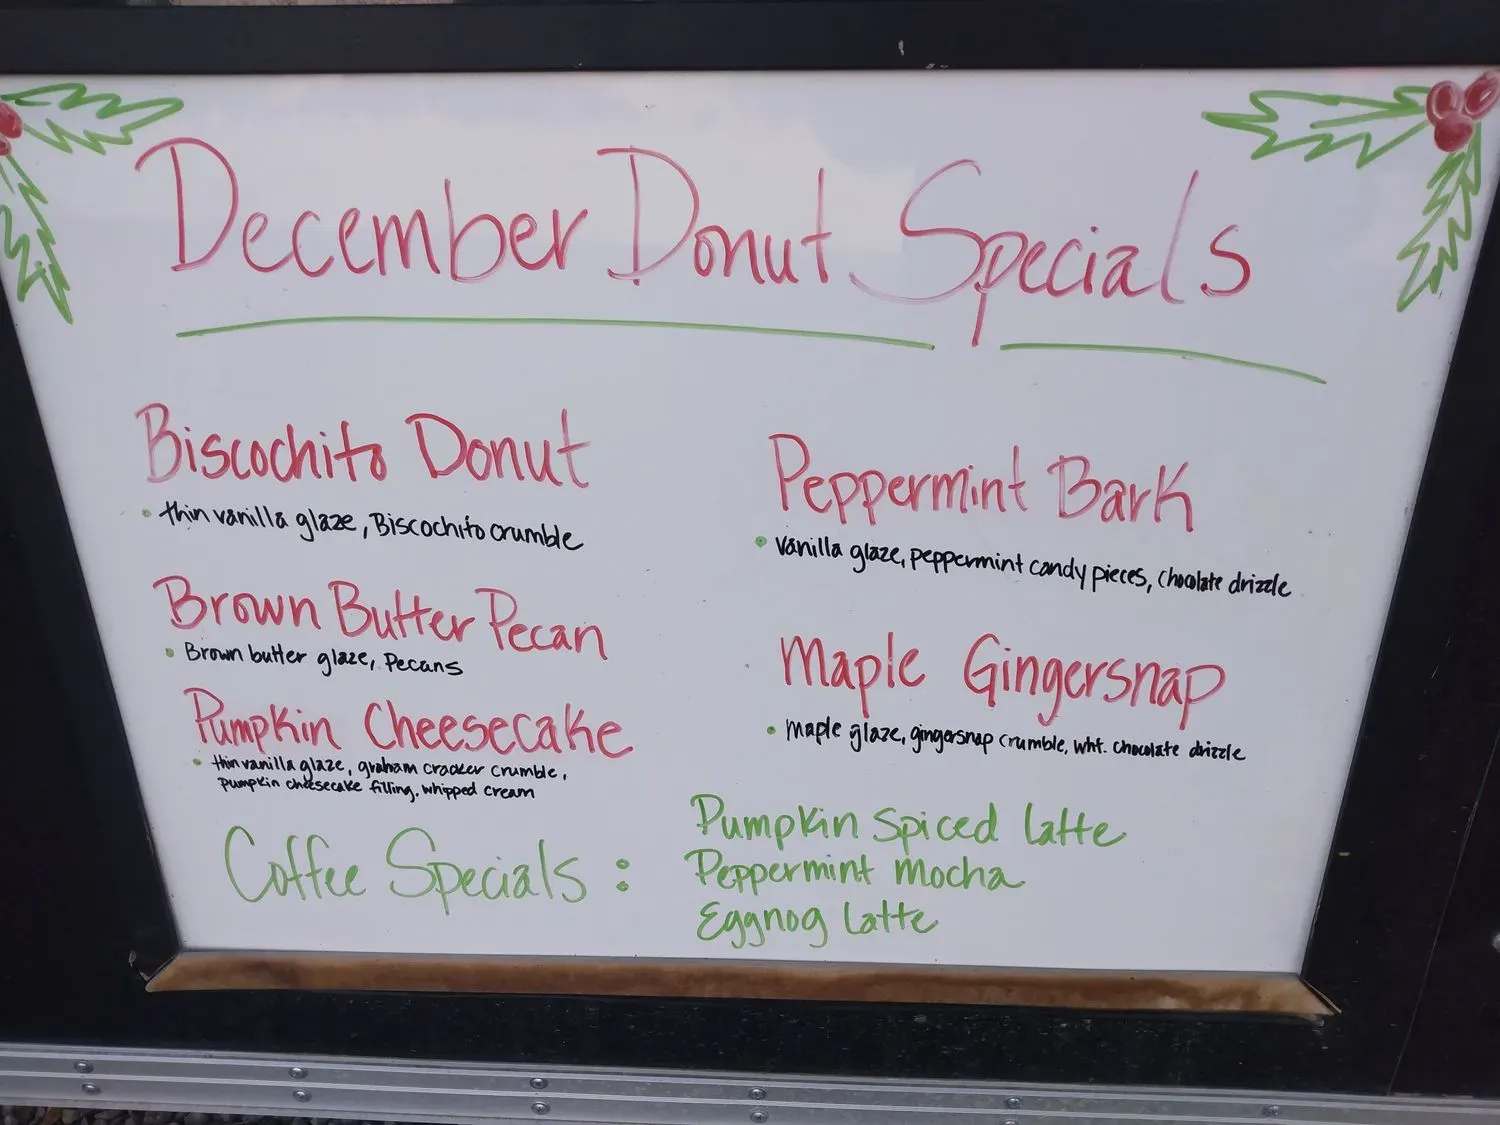 December Donut Specials
Biscochito Donut
• thin vanilla glaze, Biscochito crumble
Brown Butter Pecan
• Brown butter glaze, Pecans
Pumpkin Cheesecake
• thin vanilla glaze, graham cracker crumble,
pumpkin cheesecake filling, whipped cream
Peppermint Bark
• vanilla glaze, peppermint candy pieces, chocolate drizzle
Maple Gingersnap
• maple glaze, gingersnap crumble, wht. chocolate drizzle
Coffee Specials :
Pumpkin Spiced Latte
Peppermint Mocha
Eggnog Latte